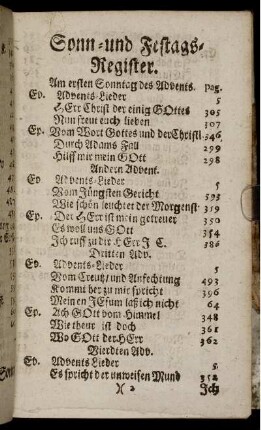 Sonn- und Festags-
Register.
Am ersten Sonntag des Advents. pag.
Ev. Advents-Lieder 5
HErr Christ der einig GOttes 305
Nun freut euch lieben 307
Ep. Vom Wort Gottes und der Christl. 346
Durch Adams Fall 299
Hilff mir mein GOtt 298
Andern Advent.
Ev Advents-Lieder 5
Vom Jüngsten Gericht
Wie schön leuchtet der Morgenst 319
Ep. Der HErr ist mein getreuer 350
Es woll uns GOtt 354
Ich ruff zu dir HErr J C. 386
Dritten Adv.
Ev. Advents-Lieder 5
Vom Creutz/ und Anfechtung 493
Kommt her zu mir spricht 396
Meinen JEsum laß ich nicht 64
Ep. Ach GOtt vom Himmel 348
Wie theur ist doch 361
Wo GOtt der HErr 362
Vierdten Adv.
Ev. Advents Lieder 5
Es spricht der unweisen Mund 352
)( 2 Ich